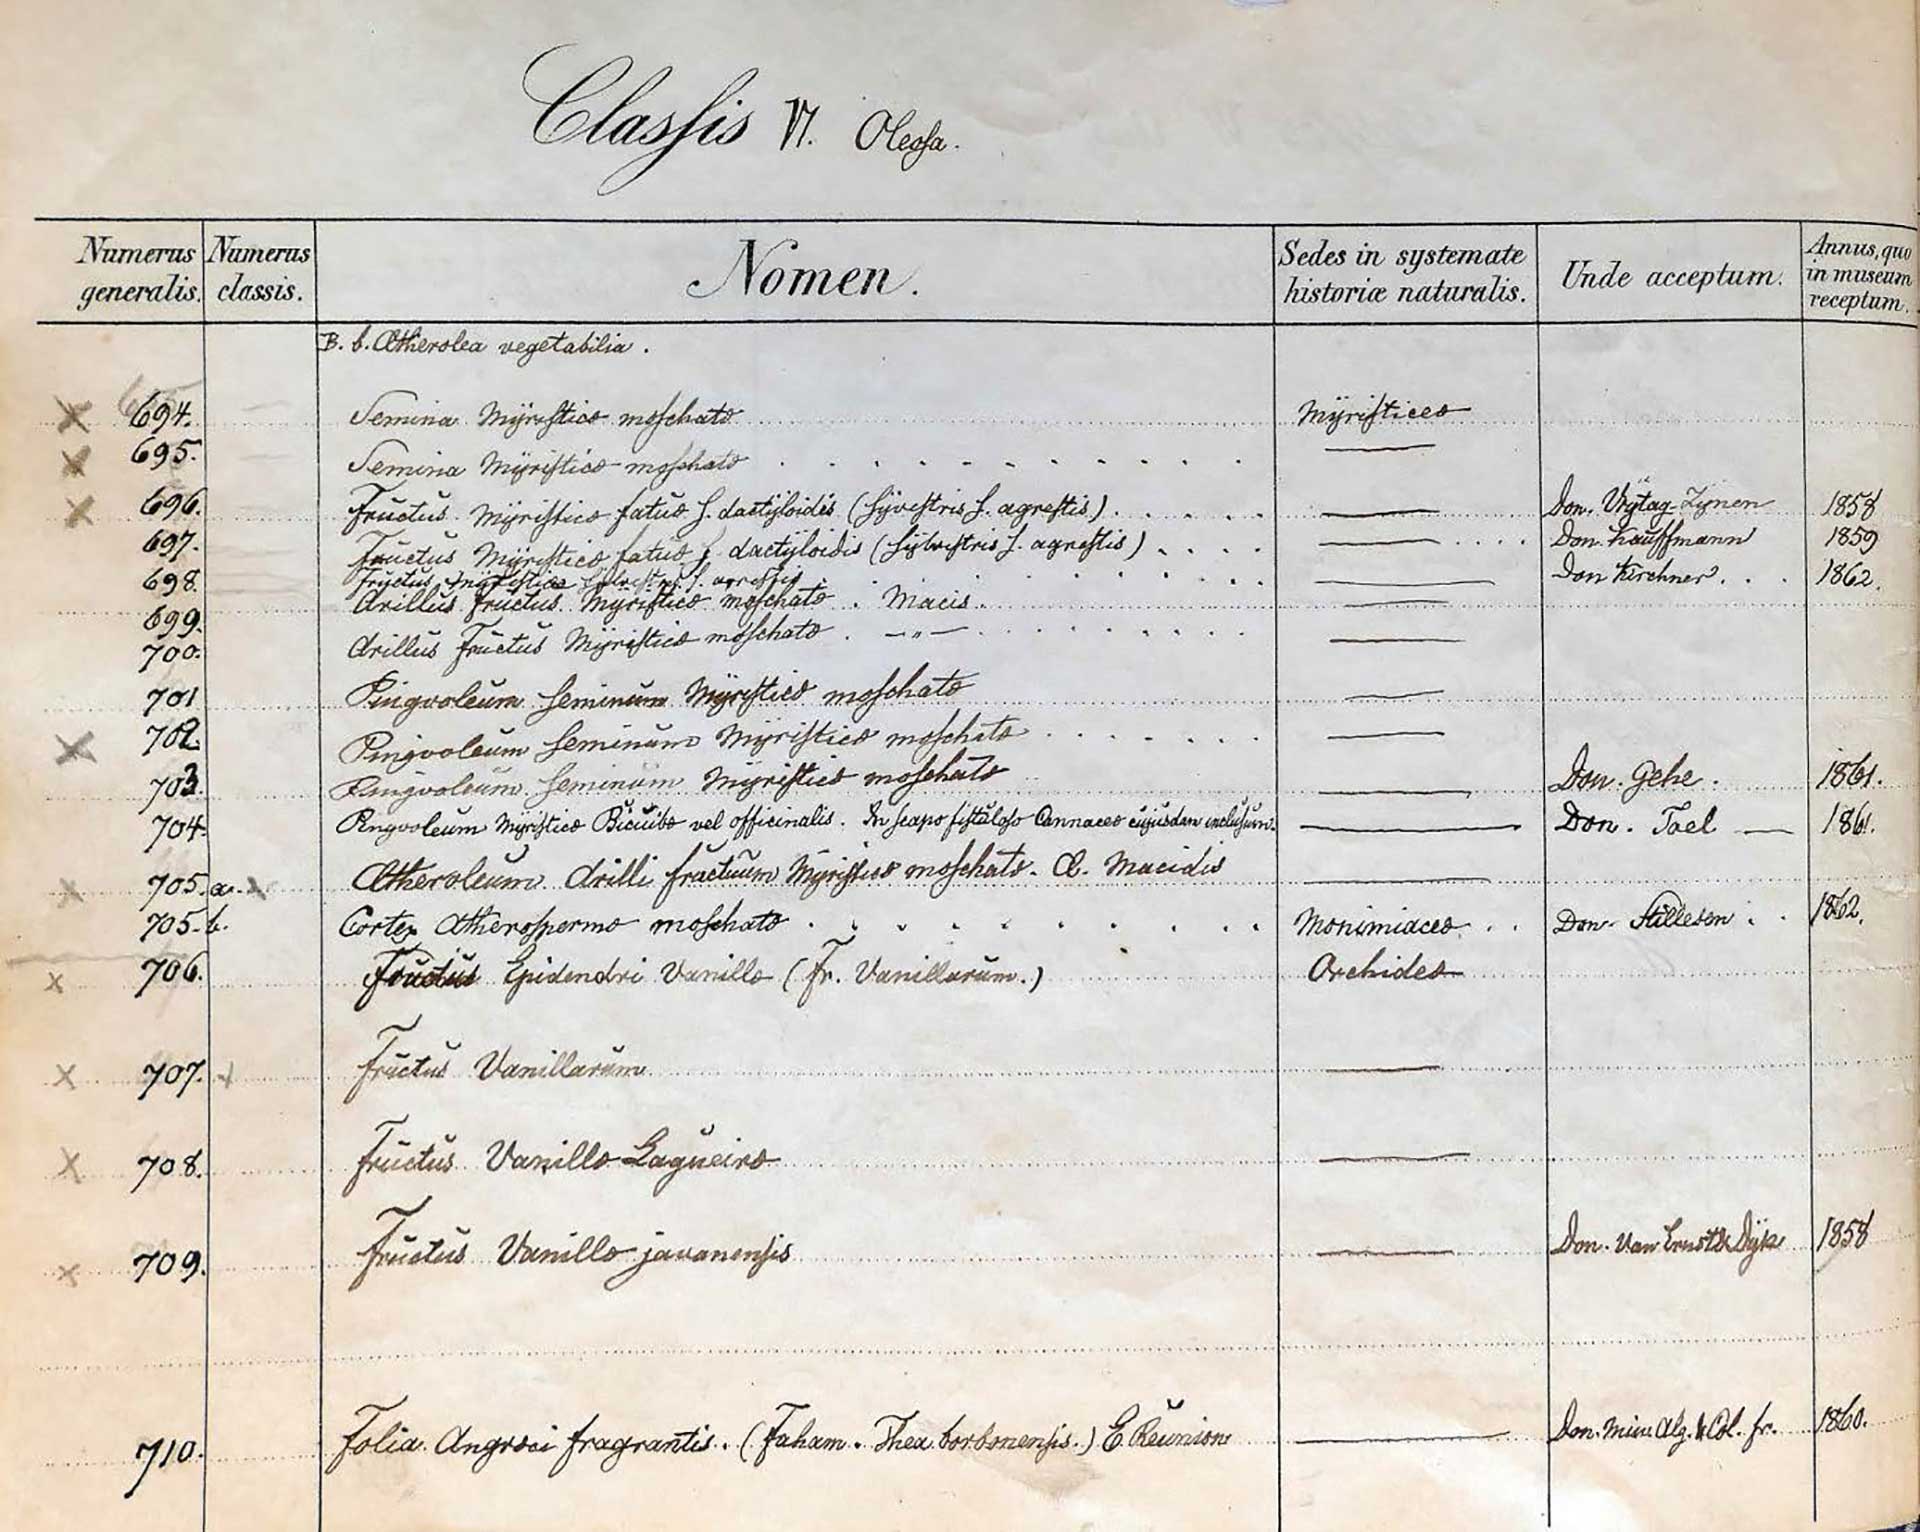 Classis VI. Oleosa.
Numerus generalis. Numerus classis. Nomen. Sedes in systemate historiæ naturalis. Unde acceptum. Annus, quo in museum receptum.
B. b. Ætherolea vegetabilia.
694. Semina Myristicæ moschatæ Myristiceæ
695. Semina Myristicæ moschatæ ———
696. Fructus Myristicæ fatuæ s. dactyloidis (syvestris s. agrestis) ——— Don. 1858
697. Fructus Myristicæ fatuæ s. dactyloidis (sylvestris s. agrestis) ——— Don. Kauffmann 1859
698. Fructus Myristicæ sylvestris s. agrestis ——— Don Kirchner. 1862.
699. Arillus fructus Myristicæ moschatæ. Macis. ———
700. Arillus Fructus Myristicæ moschatæ. —„— ———
701 Pingvoleum seminum Myristicæ moschatæ ———
702 Pingvoleum seminum Myristicæ moschatæ ———
703. Pingvoleum seminum Myristicæ moschatæ ——— Don. Gehe. 1861.
704. Pingvoleum Myristicæ Bicuibæ vel officinalis. In scapo fistuloso Cannaceæ cujusdam inclusum. ——— Don. Joel — 1861.
705. a. Ætheroleum Arilli fructuum Myristicæ moschatæ. Æ. Macidis ———
705. b. Cortex Atherospermæ moschatæ Monimiaceæ Don. 1862.
706. Fructus Epidendri Vanillæ (Fr. Vanillarum.) Orchideæ
707. Fructus Vanillarum ———
708. Fructus Vanillæ Lagueiræ ———
709. Fructus Vanillæ javanensis ——— Don. Van Ernst & Dyk 1858
710. Folia Angræci fragrantis. (Faham. Thea borbonensis.) E Réunion ——— Don. Min. Alg. & Col. fr. 1860.